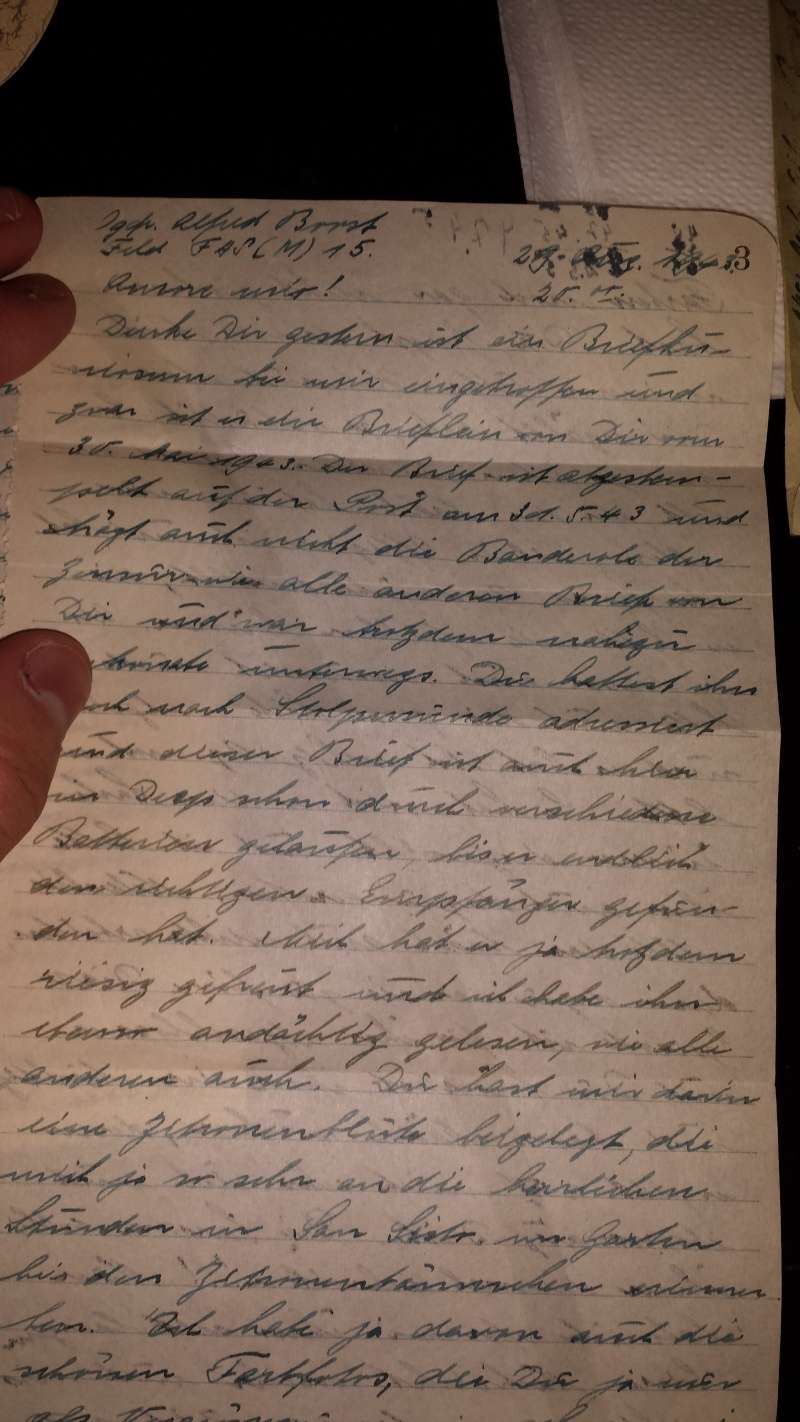 Alfred Borst
Feld FAS(M) 15.
29. 3
Amore mio! 20.
Denke Dir gestern ist ein Briefku-
riosum bei mir eingetroffen und
zwar ist es ein Brieflein von Dir vom
30. Mai 1943. Der Brief ist abgestem-
pelt auf der Post am 31. 5. 43 und
trägt auch nicht die Banderole der
Zensur wie alle anderen Briefe von
Dir und war trotzdem nahezu
Monate unterwegs. Du hattest ihn
noch nach Stolpmünde adressiert
und dieser Brief ist auch hier
in Deep schon durch verschiedene
Batterien gelaufen, bis er endlich
den richtigen Empfänger gefun-
den hat. Mich hat er ja trotzdem
riesig gefreut und ich habe ihn
ebenso andächtig gelesen, wie alle
anderen auch. Du hast mir darin
eine Zitronenblüte beigelegt, die
mich ja so sehr an die herrlichen
Stunden in San Sisto im Garten
bei den Zitronenbäumchen erinner
ten. Ich habe ja davon auch die
schönen Farbfotos, die Du ja mir
als